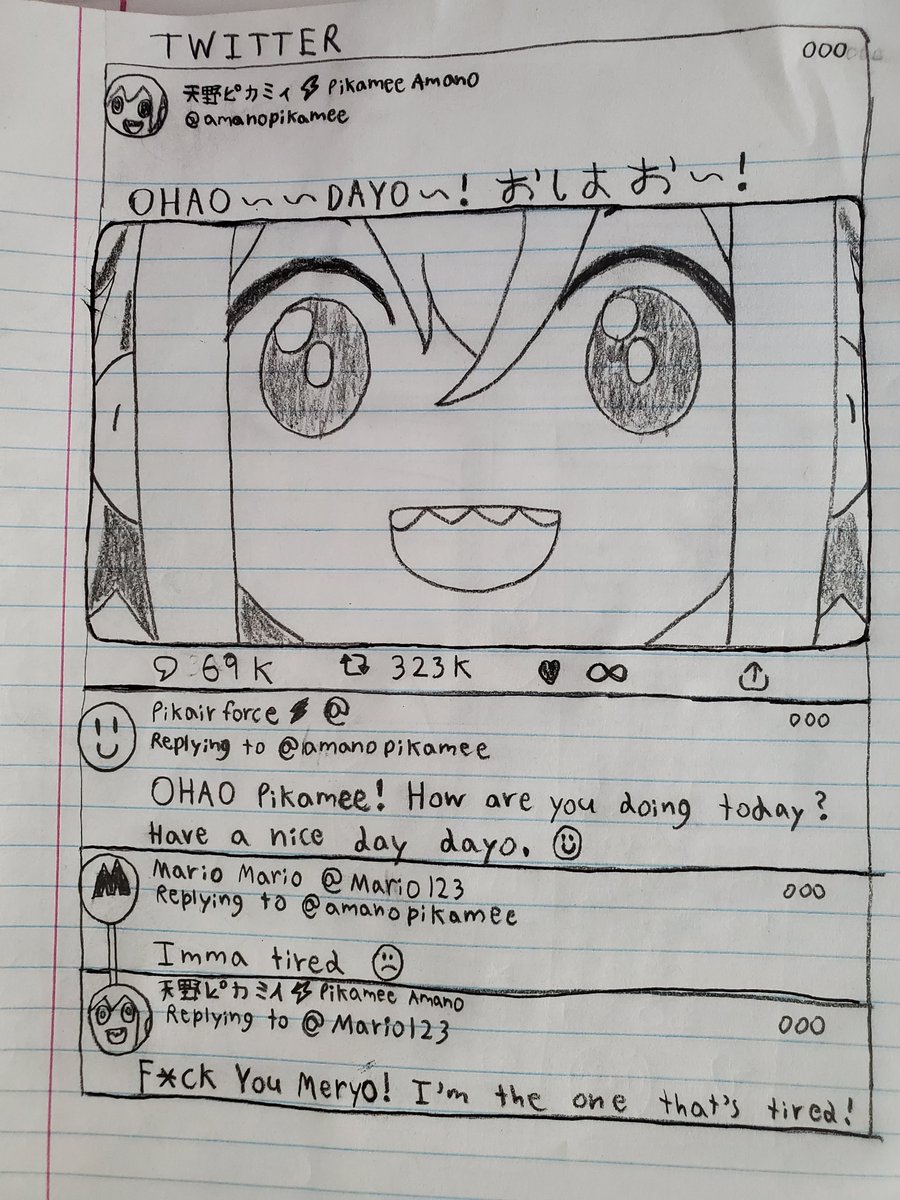 TWITTER
天野ピカミィ⚡Pikamee Amano
@amanopikamee
OHAO~~DAYO~! おしよ おい~!
69K 323K ∞
Pikairforce⚡ @
Replying to @amanopikamee
OHAO Pikamee! How are you doing today?
Have a nice day dayo. ☺
Mario Mario @Mario123
Replying to @amanopikamee
Imma tired ☹
天野ピカミィ⚡Pikamee Amano
Replying to @Mario123
F*ck You Meryo! I'm the one that's tired!